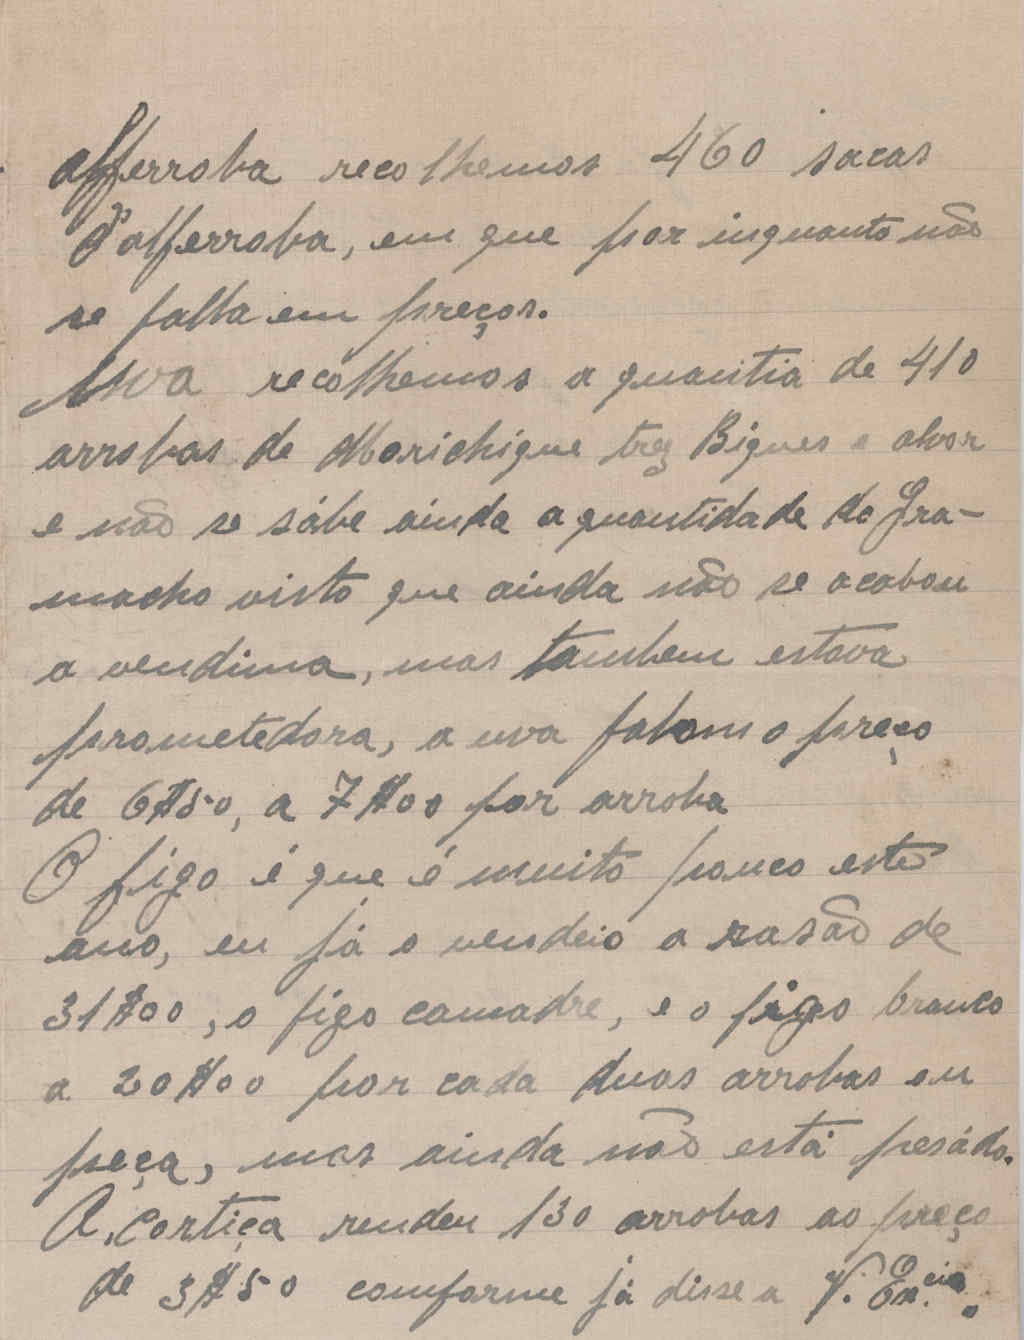 alfferroba recolhemos 460 sacas
d'alfferroba, em que por inquanto não
se falla em preços.
Uva recolhemos a quantia de 410
arrobas de Monichique trez Bigues e alvor
e não se sábe ainda a quantidade do Gra-
macho visto que ainda não se acabou
a vendima, mas tambem estava
prometedora, a uva falam o preço
de 6$50, a 7$00 por arroba
O figo é que é muito pouco este
ano, eu já o vendeio a rasão de
31$00, o figo camadre, e o figo branco
a 20$00 por cada duas arrobas ou
peça, mas ainda não está pesádo.
A, Cortiça rendeu 130 arrobas ao preço
de 3$50 comforme já disse a V. Ex.cia.